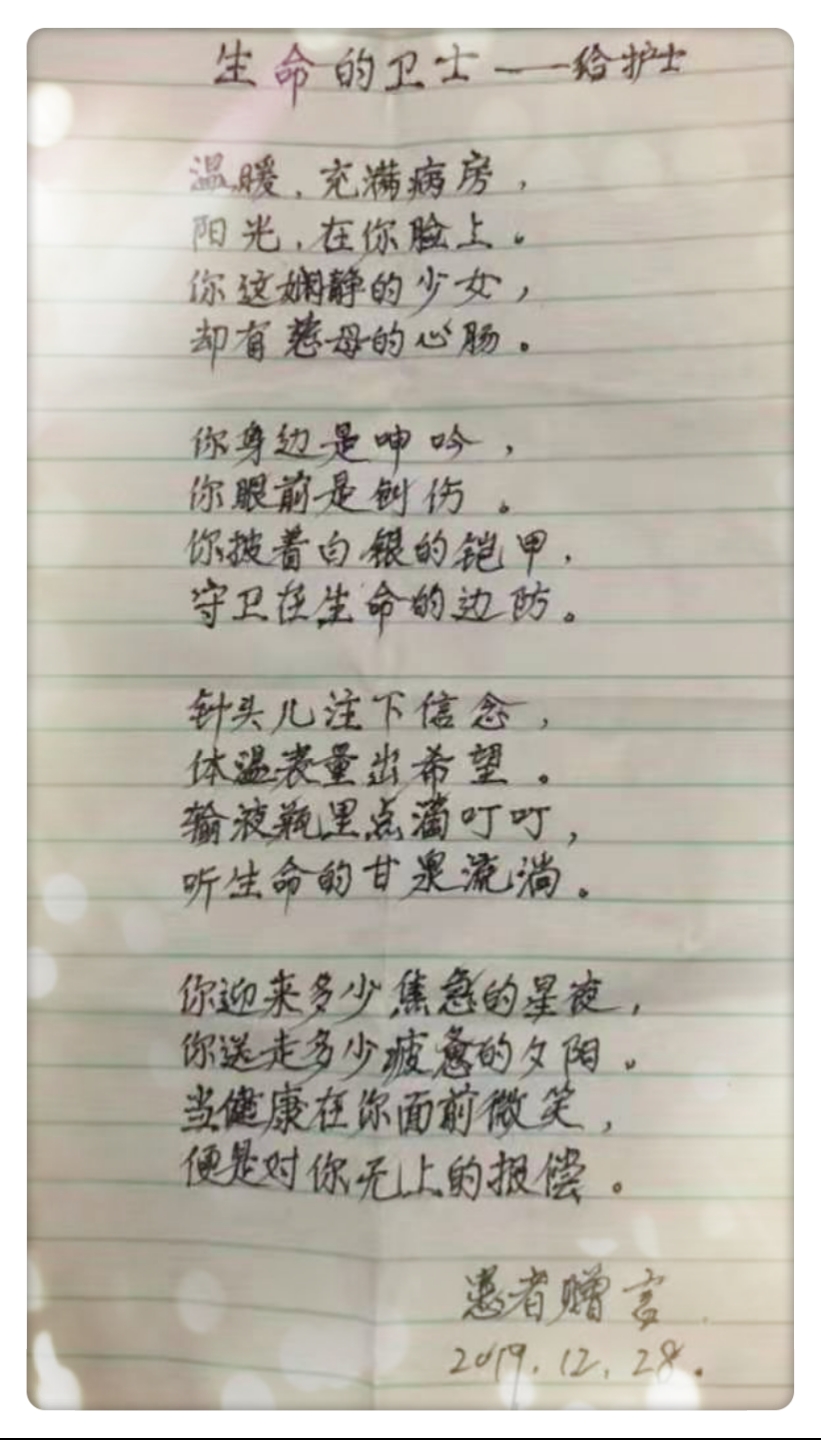 生命的卫士——给护士
温暖，充满病房，
阳光，在你脸上。
你这娴静的少女，
却有慈母的心肠。
你身边是呻吟，
你眼前是创伤。
你披着白银的铠甲，
守卫在生命的边防。
针头儿注下信念，
体温表量出希望。
输液瓶里点滴叮叮，
听生命的甘泉流淌。
你迎来多少焦急的星夜，
你送走多少疲惫的夕阳。
当健康在你面前微笑，
便是对你无上的报偿。
患者赠言.
2019.12.28.